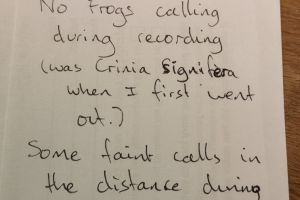 No frogs calling
during recording
(was Crinia Signifera
when I first went
out.)
Some faint calls in
the distance during